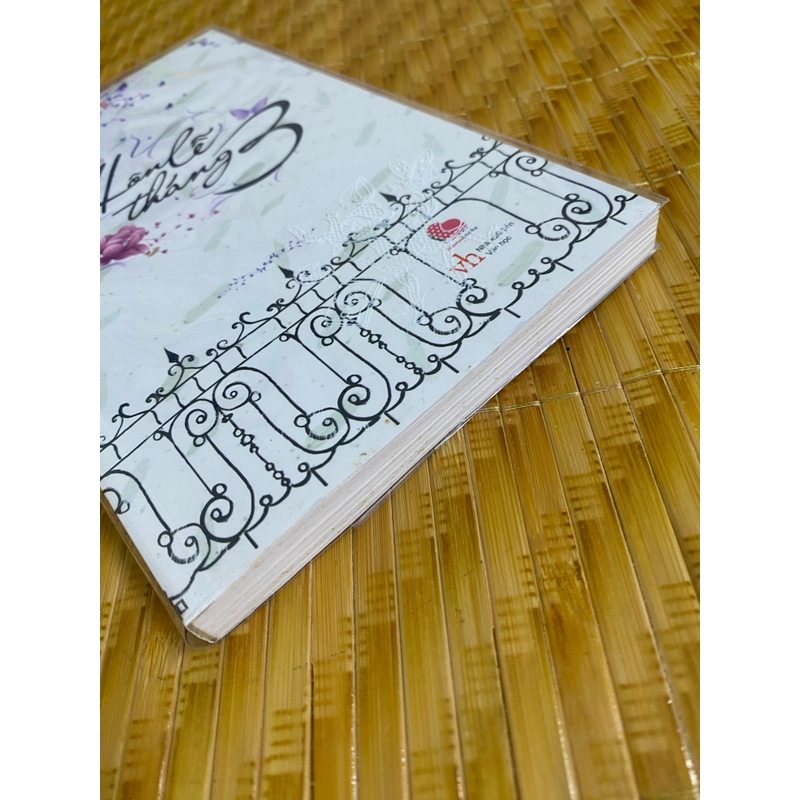 Hôn lễ
tháng 3
vh
Nhà xuất bản
Văn học